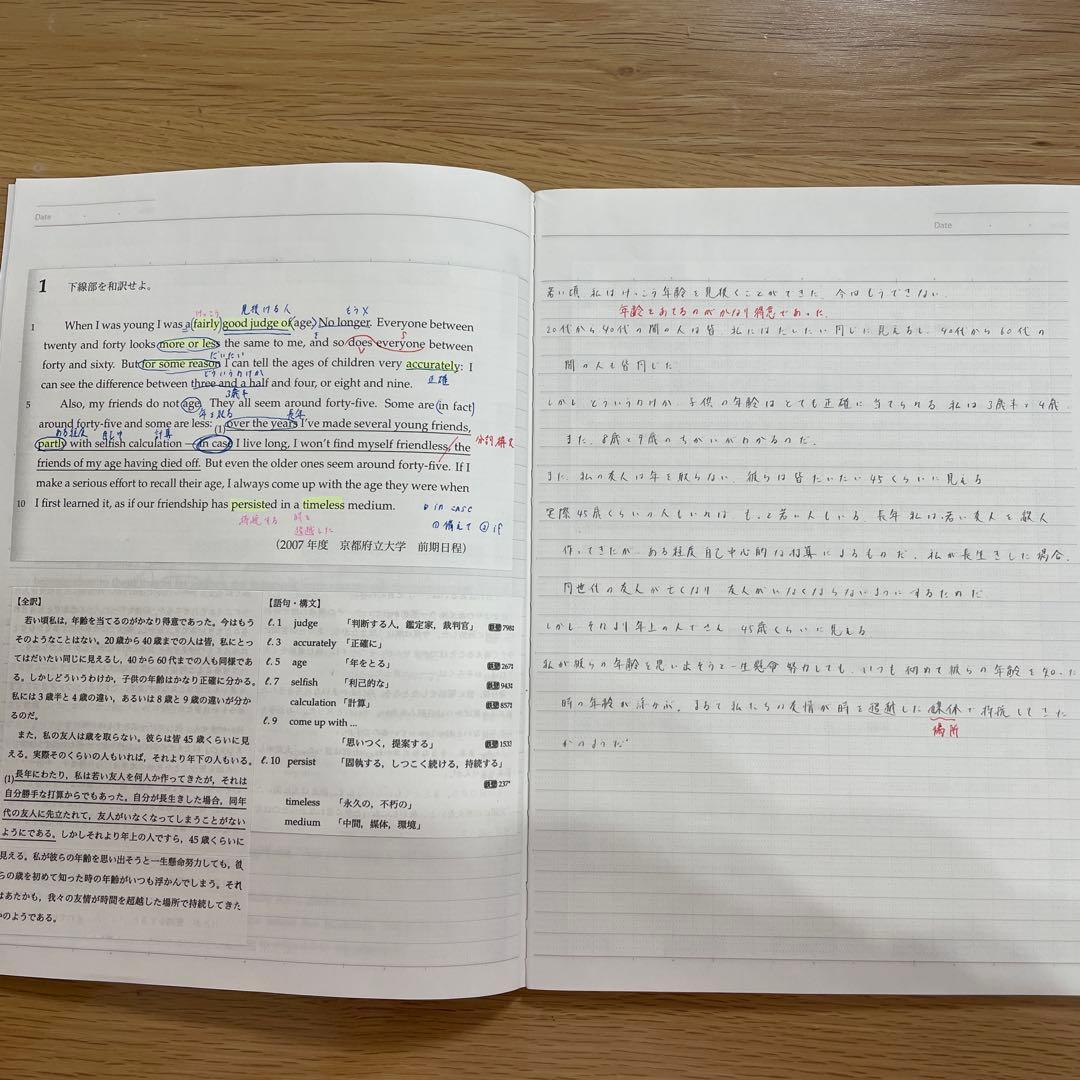 Date
1 下線部を和訳せよ。
けっこう 見抜ける人 もう×
1 When I was young I was a fairly good judge of age. No longer. Everyone between
twenty and forty looks more or less the same to me, and so does everyone between
だいたい S V
forty and sixty. But for some reason I can tell the ages of children very accurately: I
どういうわけか 正確
can see the difference between three and a half and four, or eight and nine.
3歳半
5 Also, my friends do not age. They all seem around forty-five. Some are (in fact)
年を取る 長年
around forty-five and some are less: (1) over the years I've made several young friends,
ある程度 自己中 計算
partly with selfish calculation — in case I live long, I won't find myself friendless, the
分詞構文
friends of my age having died off. But even the older ones seem around forty-five. If I
make a serious effort to recall their age, I always come up with the age they were when
10 I first learned it, as if our friendship has persisted in a timeless medium.
持続する 時を
超越した
in case
① 備えて ② if
(2007年度 京都府立大学 前期日程)
【全訳】
若い頃私は，年齢を当てるのがかなり得意であった。今はもう
そのようなことはない。20歳から40歳までの人は皆，私にとっ
てはだいたい同じに見えるし，40から60代までの人も同様であ
る。しかしどういうわけか，子供の年齢はかなり正確に分かる。
私には3歳半と4歳の違い，あるいは8歳と9歳の違いが分か
るのだ。
また，私の友人は歳を取らない。彼らは皆45くらいに見
える。実際そのくらいの人もいれば，それより年下の人もいる。
(1)長年にわたり，私は若い友人を何人か作ってきたが，それは
自分勝手な打算からでもあった。自分が長生きした場合，同年
代の友人に先立たれて，友人がいなくなってしまうことがない
ようにである。しかしそれより年上の人ですら，45歳くらいに
見える。私が彼らの年齢を思い出そうと一生懸命努力しても，彼
らの歳を初めて知った時の年齢がいつも浮かんでしまう。それ
はあたかも，我々の友情が時間を超越した場所で持続してきた
かのようである。
【語句・構文】
ℓ.1 judge 「判断する人，鑑定家，裁判官」
ℓ.3 accurately 「正確に」
ℓ.5 age 「年をとる」
ℓ.7 selfish 「利己的な」
calculation 「計算」
ℓ.9 come up with ...
「思いつく，提案する」
ℓ.10 persist 「固執する，しつこく続ける，持続する」
timeless 「永久の，不朽の」
medium 「中間，媒体，環境」
Date
若い頃、私はけっこう年齢を見抜くことができた。今はもうできない。
年齢をあてるのがかなり得意であった。
20代から40代の間の人は皆、私にはだいたい同じに見えるし、40代から60代の
間の人も皆同じだ
しかし どういうわけか、子供の年齢はとても正確に当てられる 私は3歳半と4歳、
また、8歳と9歳のちがいがわかるのだ。
また、私の友人は年を取らない 彼らは皆だいたい45くらいに見える
実際45歳くらいの人もいれば もっと若い人もいる。長年 私は、若い友人を数人
作ってきたが、ある程度自己中心的な打算によるものだ。私が長生きした場合、
同世代の友人が亡くなり 友人がいなくならないようにするためだ
しかし それより年上の人でさえ 45歳くらいに見える
私が彼らの年齢を思い出そうと一生懸命努力しても、いつも初めて彼らの年齢を知った
時の年齢が浮かぶ。まるで私たちの友情が時を超越した媒体で持続してきた
場所
かのようだ